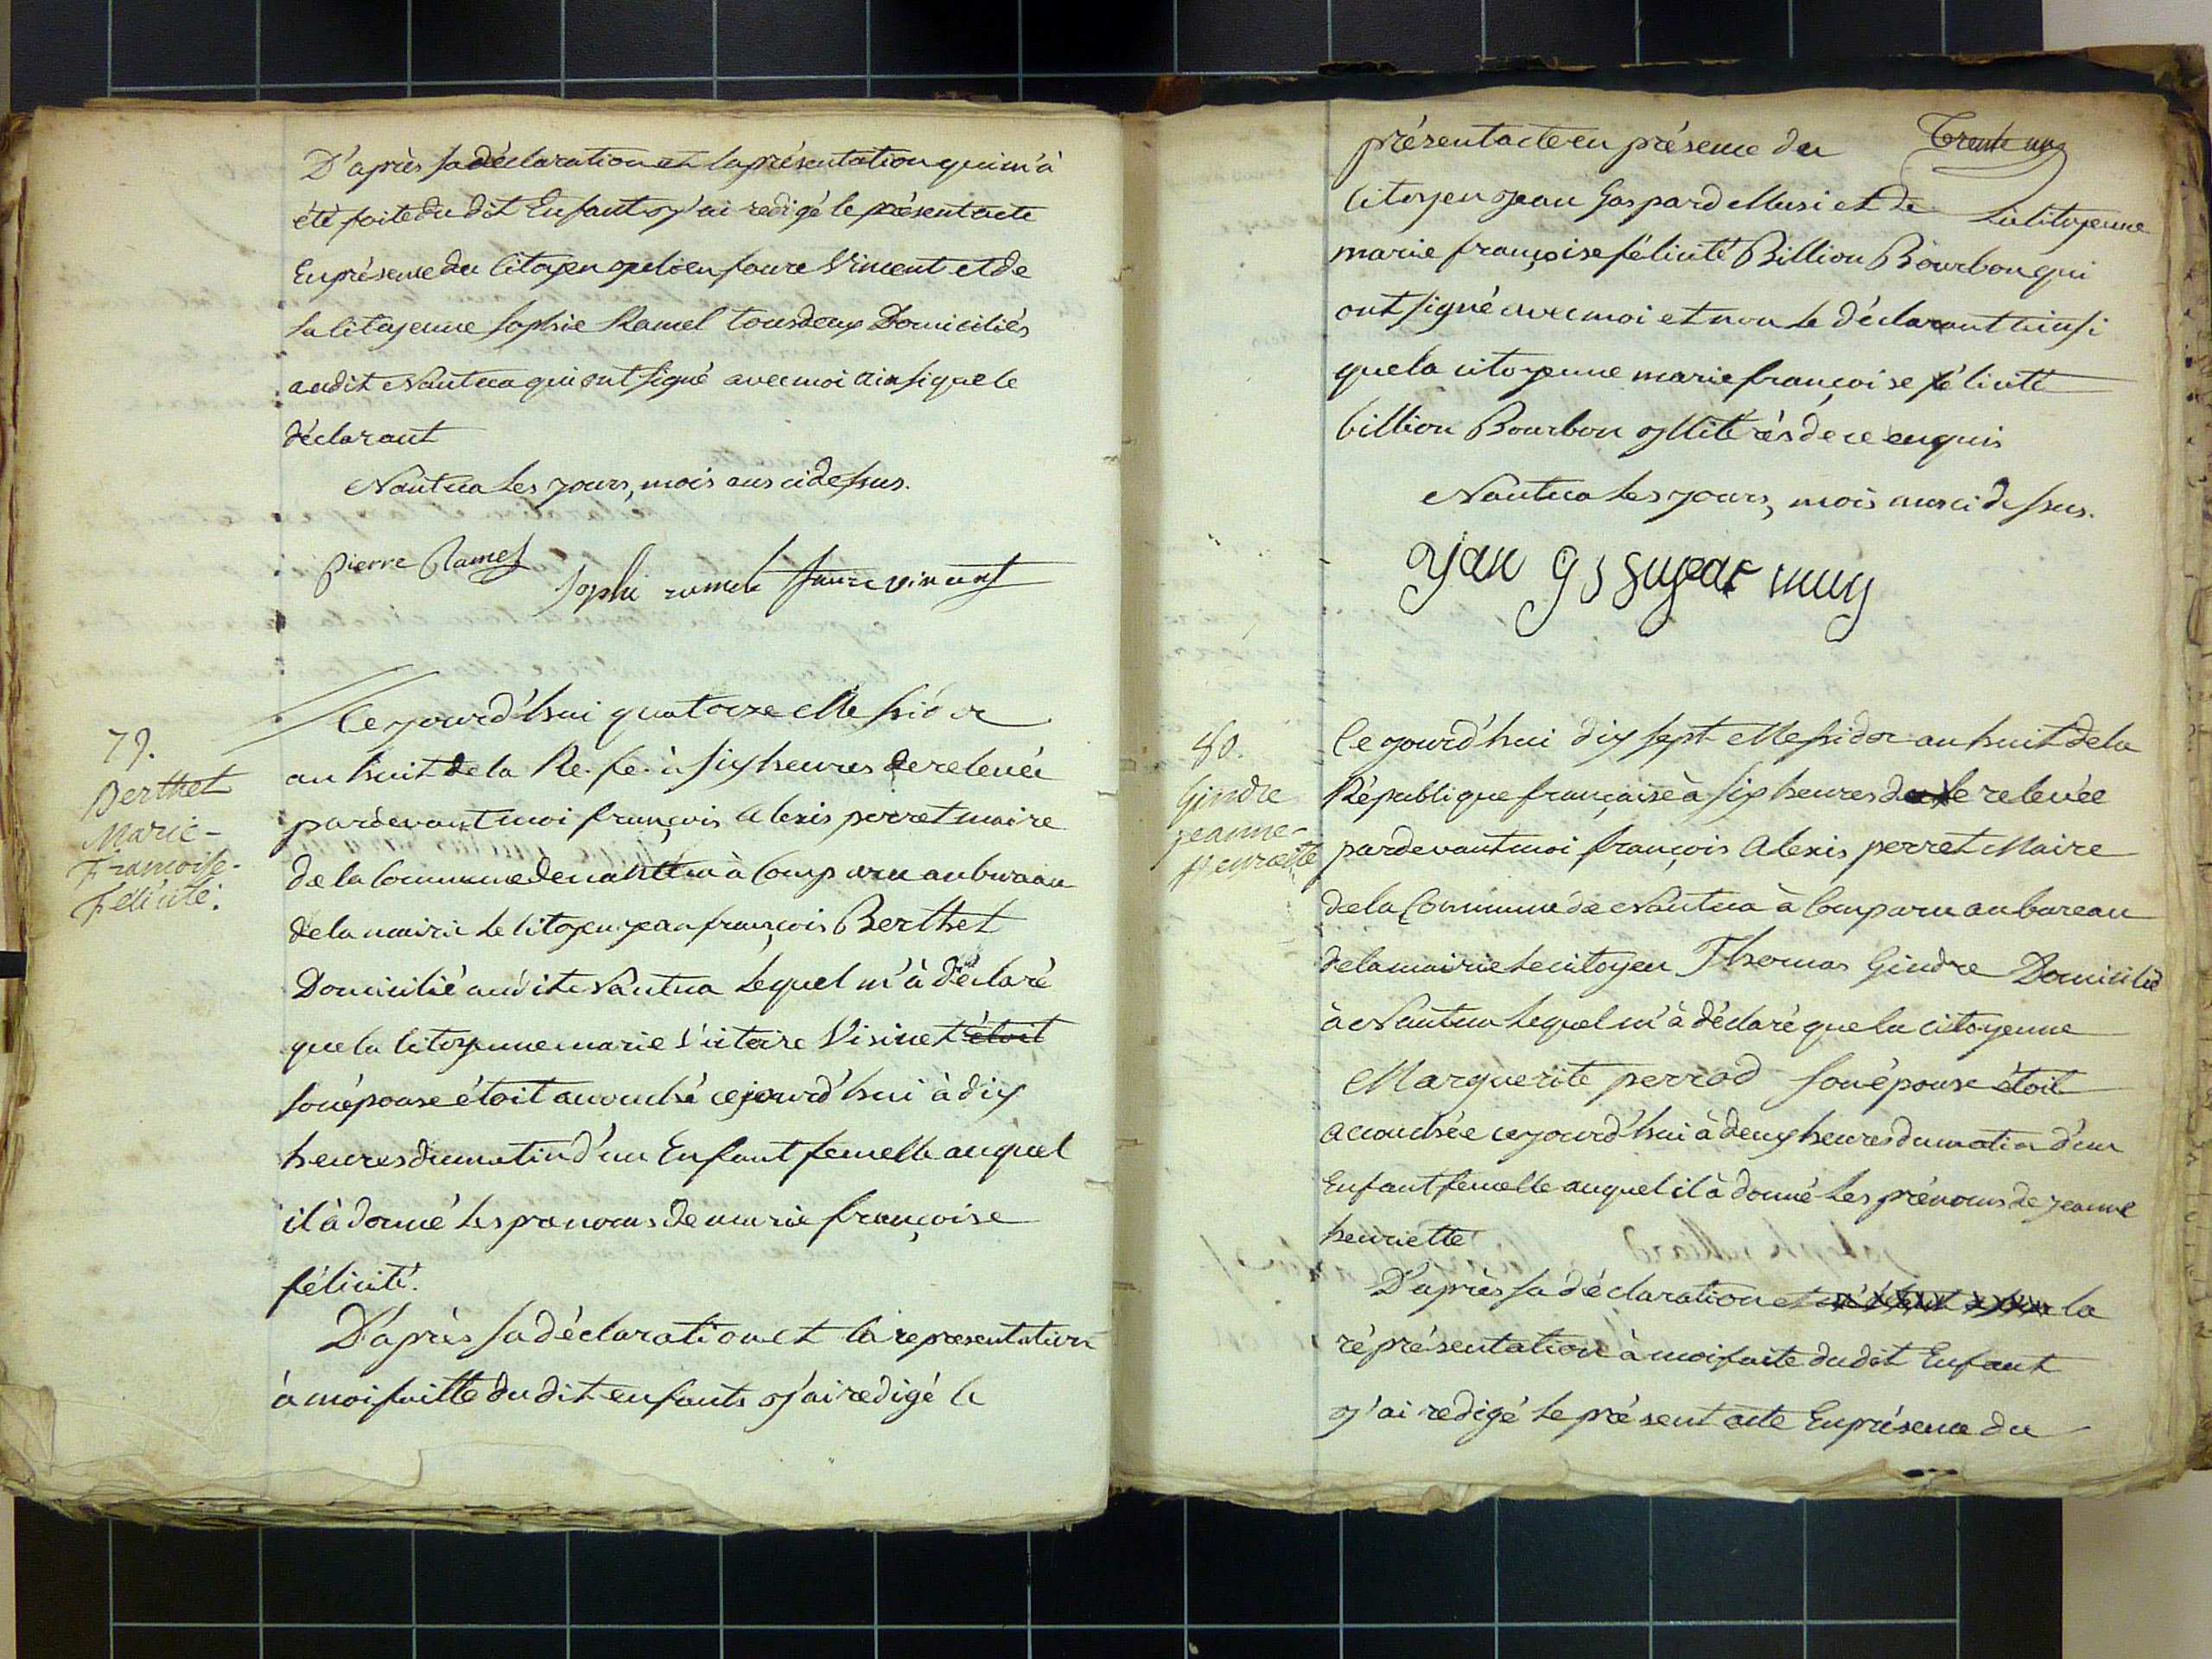 D'après sa déclaration et la présentation qui m'à
été faite du dit Enfant j'ai redigé le présent acte
En présence du Citoyen julien faure Vincent et de
la Citoyenne Sophie Ramel tous deux Domiciliés
audit Nantua qui ont signé avec moi ainsi que le
déclarant
Nantua les jours, mois ans ci dessus.
Pierre Ramel
Sophi ramel faure vincent
79.
Berthet
Marie-
Francoise-
Félicité.
Ce jourd'hui quatorze Messidor
an huit de la Re. fe. à six heures de relevée
pardevant moi françois Alexis perret maire
de la Commune de nantua à Comparu au bureau
de la mairie le Citoyen jean françois Berthet
Domicilié audit Nantua Lequel m'à déclaré
que la Citoyenne marie Victoire Visinet étoit
son épouse étoit accouché cejourd'hui à dix
heures du matin d'un Enfant femelle auquel
il à donné les prenoms de marie françoise
félicité.
D'après sa déclaration et la representation
à moi faitte du dit enfants j'ai redigé le
Trente un
présent acte en présence du
Citoyen jean Gaspard Musi et de la Citoyenne
marie françoise félicité Billion Bourbon qui
ont signé avec moi et non le déclarant ainsi
que la citoyenne marie françoise félicité
billion Bourbon illitérés de ce enquis
Nantua les jours, mois ans ci dessus.
80.
Gindre
jeanne-
henriette
Ce jourd'hui dix sept Messidor an huit de la
République française à six heures de relevée
pardevant moi françois Alexis perret Maire
de la Commune de Nantua à Comparu au bureau
de la mairie le citoyen Thomas Gindre Domicilié
à Nantua Lequel m'à déclaré que la citoyenne
Marguerite perrod son épouse étoit
accouchée cejourd'hui à deux heures du matin d'un
Enfant femelle auquel il à donné les prénoms de jeanne
henriette
D'après sa déclaration et la
réprésentation à moi faite du dit Enfant
j'ai redigé le présent acte En présence du